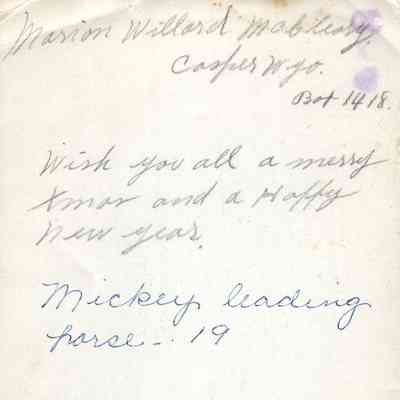 Marion Willard McCleary.
Casper Wyo.
Box 1418.
Wish you all a merry
Xmas and a Happy
New year.
Mickey leading
horse - . 19